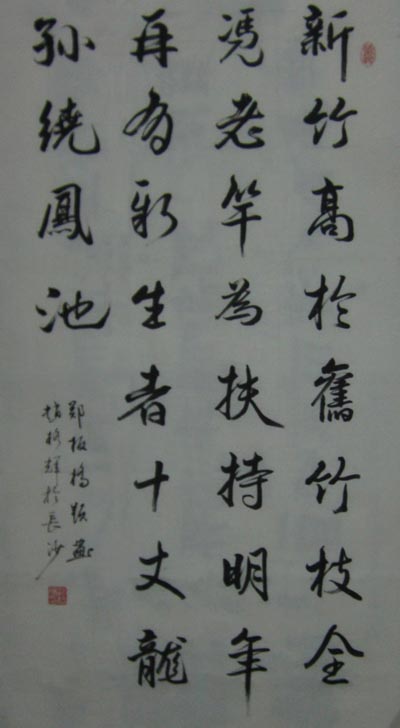 新竹高於舊竹枝全
凴老竿為扶持明年
再有新生者十丈龍
孫繞鳳池
鄭板橋題畫
趙格輝於長沙